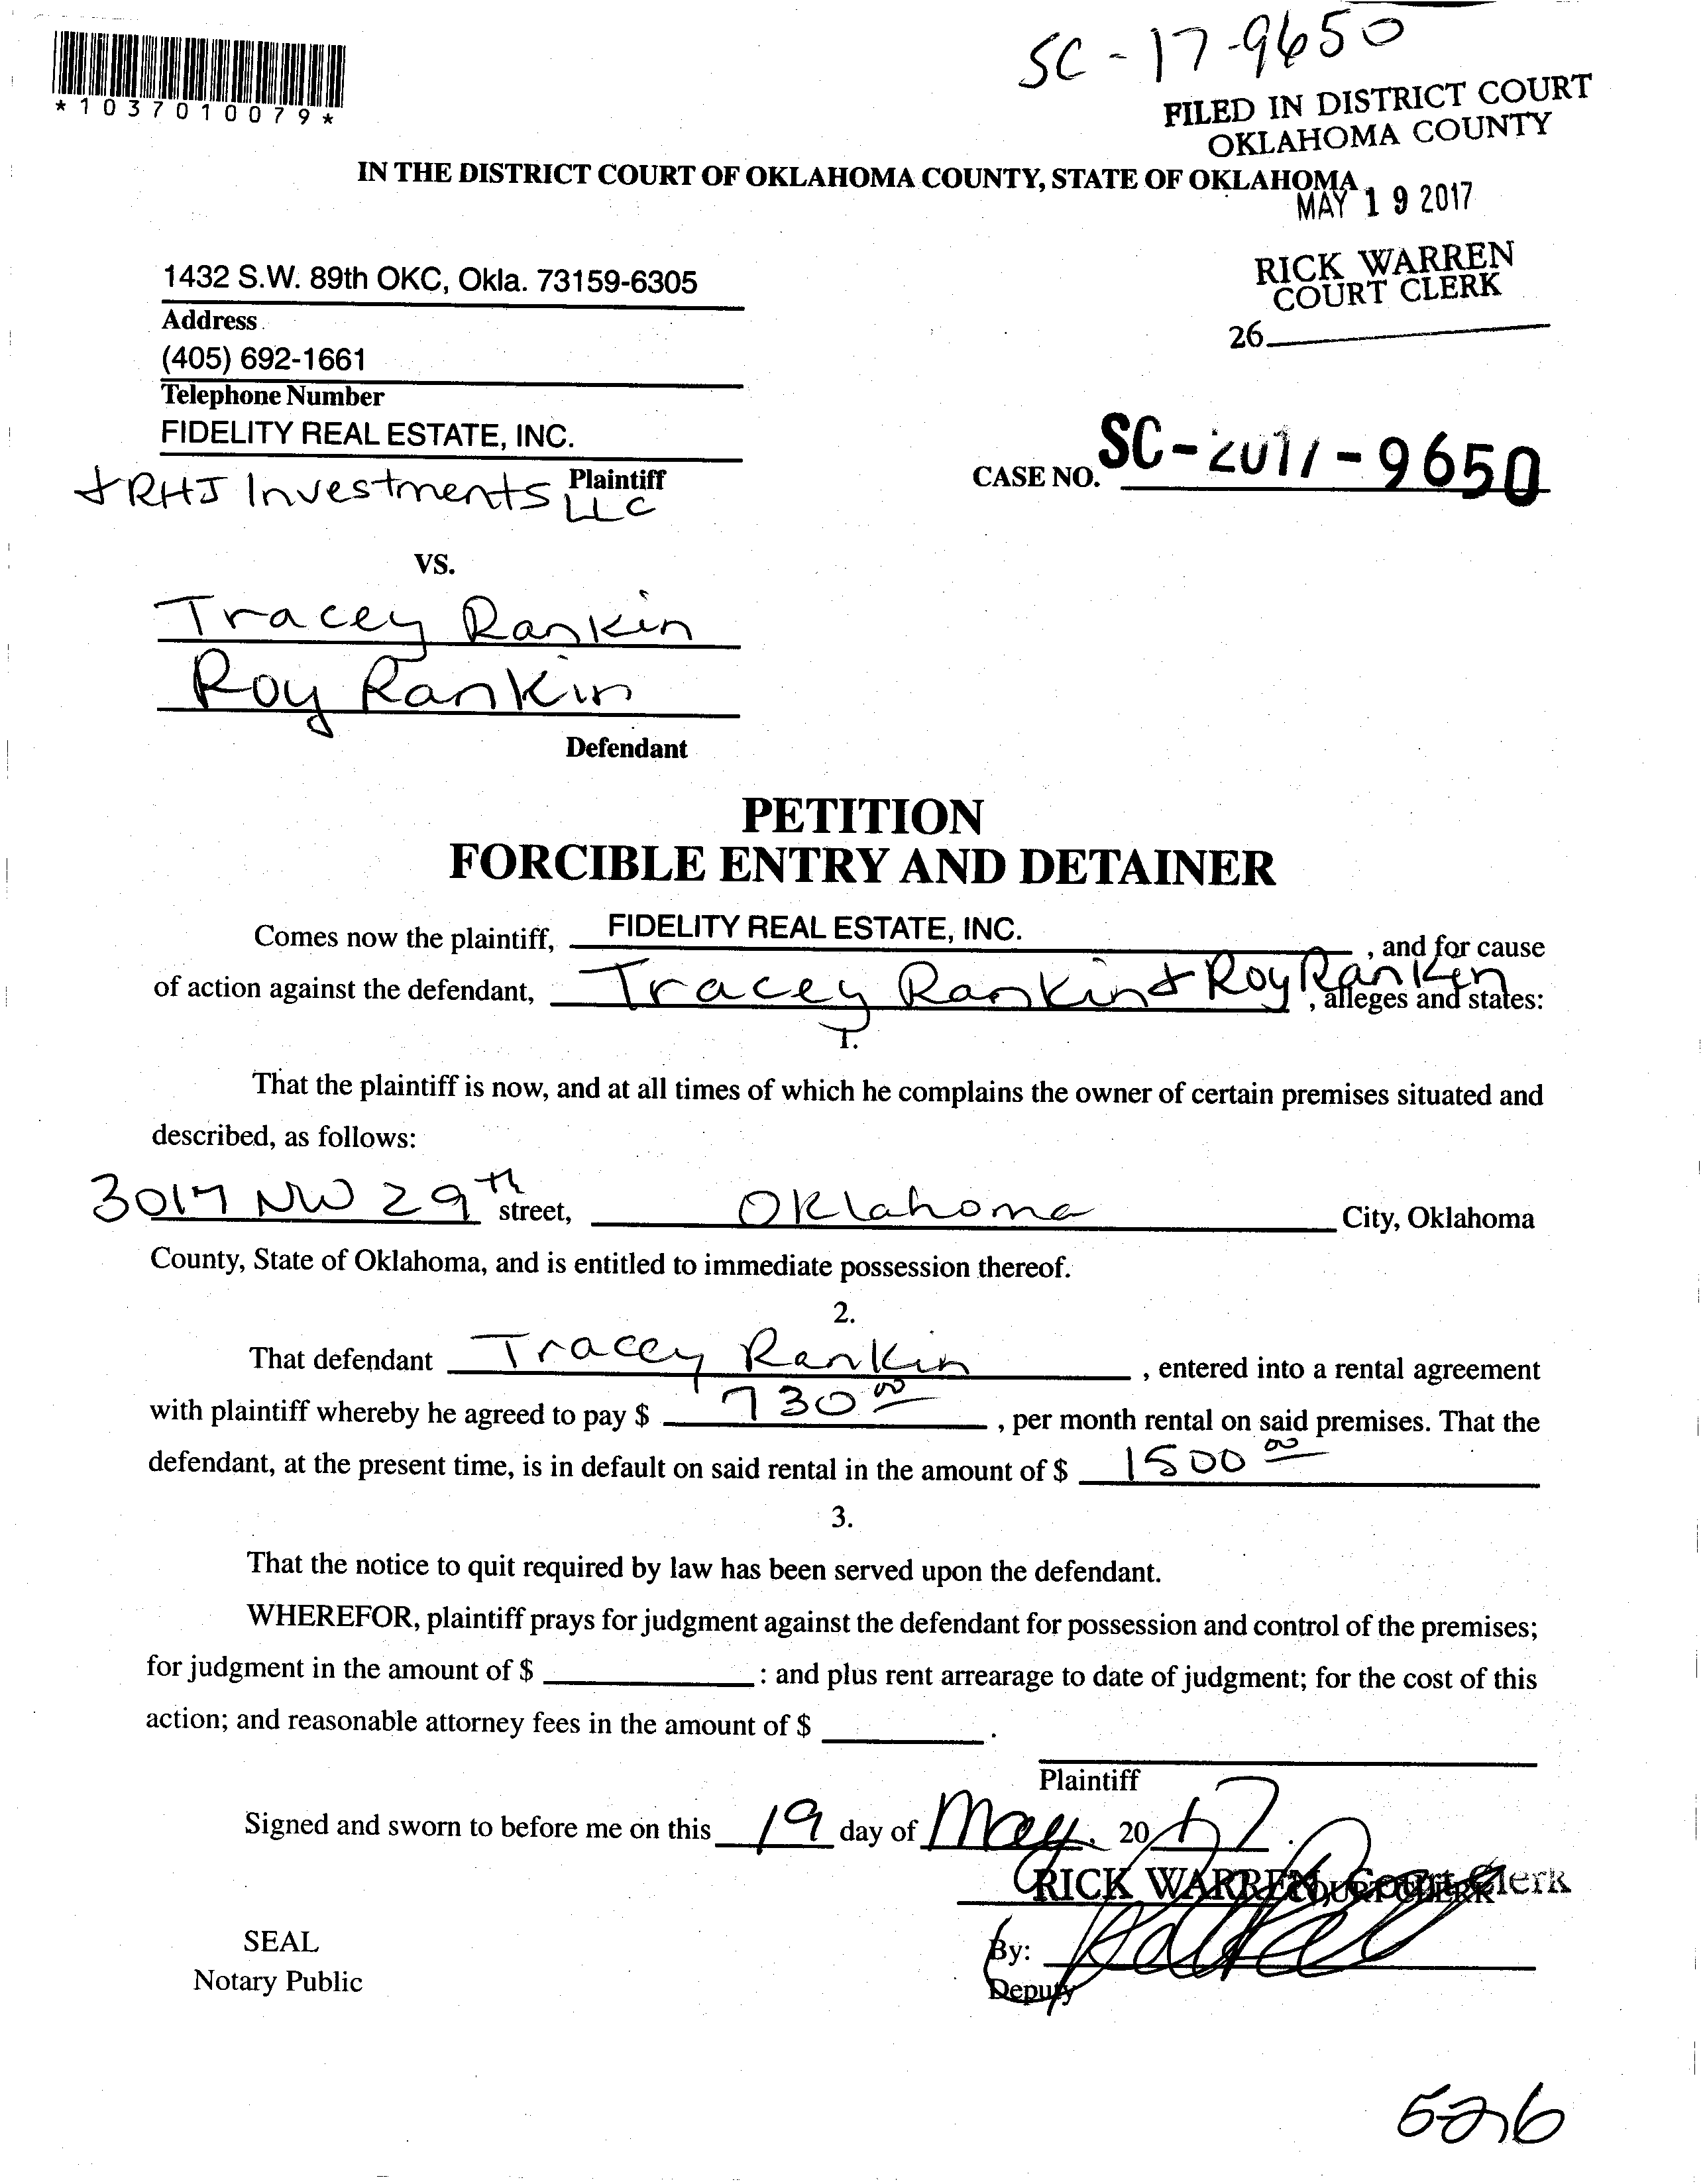 SC-17-9650
*1037010079*
FILED IN DISTRICT COURT
OKLAHOMA COUNTY
IN THE DISTRICT COURT OF OKLAHOMA COUNTY, STATE OF OKLAHOMA
MAY 19 2017
RICK WARREN
COURT CLERK
26
1432 S.W. 89th OKC, Okla. 73159-6305
Address
(405) 692-1661
Telephone Number
FIDELITY REAL ESTATE, INC.
Plaintiff
& RHJ Investments LLC
CASE NO. SC-2017-9650
VS.
Tracey Rankin
Roy Rankin
Defendant
PETITION
FORCIBLE ENTRY AND DETAINER
Comes now the plaintiff, FIDELITY REAL ESTATE, INC. , and for cause
of action against the defendant, Tracey Rankin & Roy Rankin , alleges and states:
1.
That the plaintiff is now, and at all times of which he complains the owner of certain premises situated and
described, as follows:
3017 NW 29th street, Oklahoma City, Oklahoma
County, State of Oklahoma, and is entitled to immediate possession thereof.
2.
That defendant Tracey Rankin , entered into a rental agreement
with plaintiff whereby he agreed to pay $ 730 00 , per month rental on said premises. That the
defendant, at the present time, is in default on said rental in the amount of $ 1500 00
3.
That the notice to quit required by law has been served upon the defendant.
WHEREFOR, plaintiff prays for judgment against the defendant for possession and control of the premises;
for judgment in the amount of $ : and plus rent arrearage to date of judgment; for the cost of this
action; and reasonable attorney fees in the amount of $ .
Plaintiff
Signed and sworn to before me on this 19 day of May, 2017.
RICK WARREN, Court Clerk
COURT CLERK
SEAL
Notary Public
By:
Deputy
526